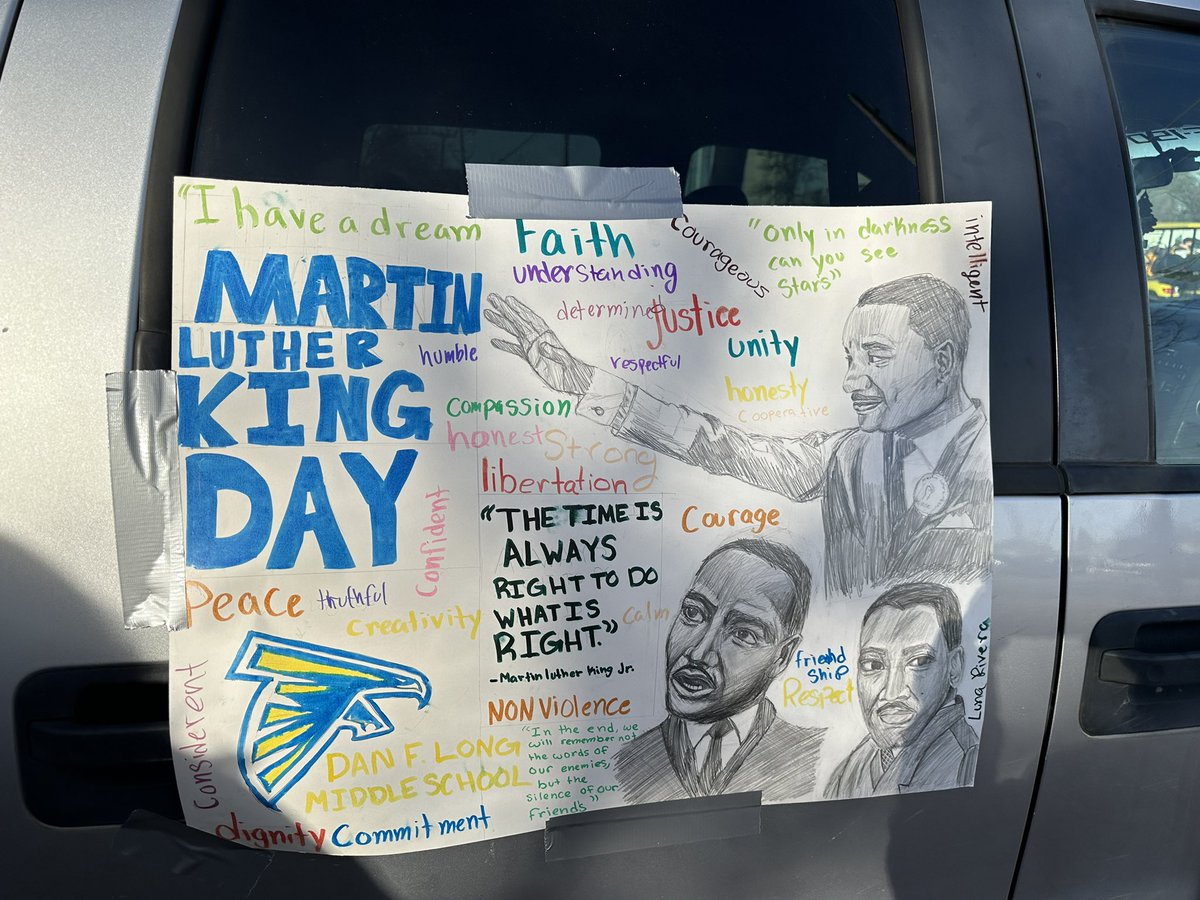 "I have a dream
MARTIN
LUTHER
KING
DAY
humble
Faith
understanding
determined
Justice
respectful
Courageous
"only in darkness
can you see
stars"
intelligent
unity
honesty
Cooperative
Compassion
honest
Strong
libertation
Confident
"THE TIME IS
ALWAYS
RIGHT TO DO
WHAT IS
RIGHT."
-Martin luther King Jr.
Courage
Calm
Peace
truthful
Creativity
Considerent
DAN F. LONG
MIDDLE SCHOOL
dignity
Commitment
NON Violence
"In the end, we
will remember not
the words of
our enemies,
but the
silence of our
friends"
friend
ship
Respect
Luna Rivera